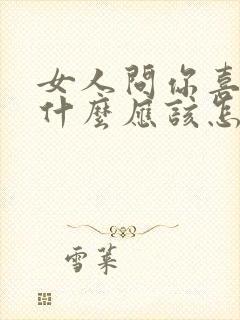 女人問你喜
什麼應該怎
雪萊